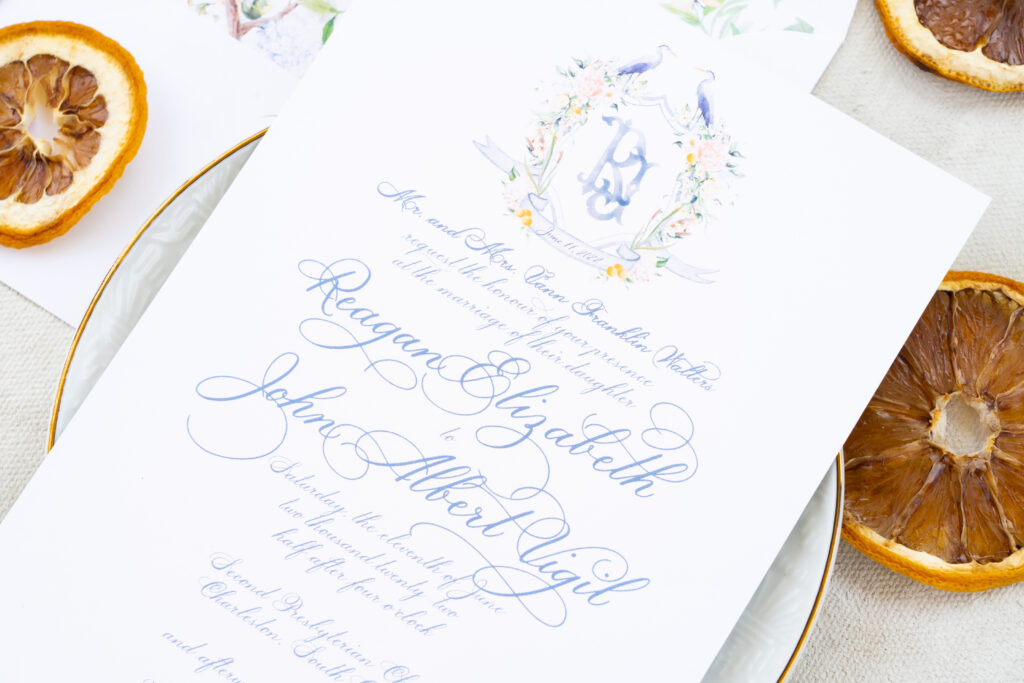 June 11, 2022
Mr. and Mrs. Vann Franklin Watters
request the honour of your presence
at the marriage of their daughter
Reagan Elizabeth
to
John Albert Vigil
Saturday, the eleventh of June
two thousand twenty two
half after four o'clock
Second Presbyterian
Charleston, South
and after